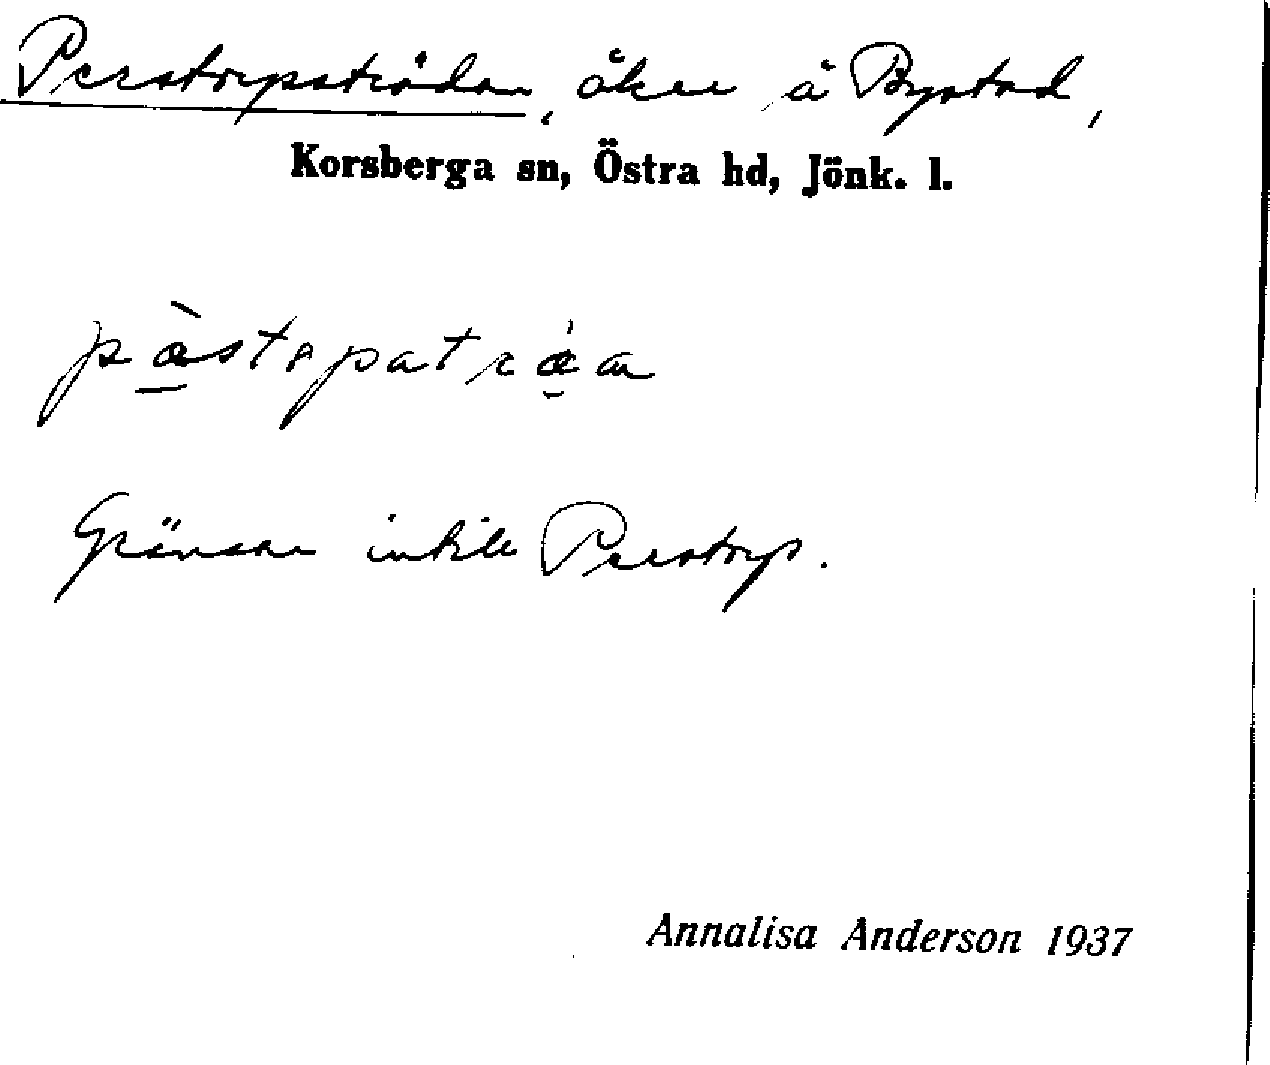 Perstorpströdan, åker å Bystad,
Korsberga sn, Östra hd, Jönk. l.
Gränsar intill Perstorp.
Annalisa Anderson 1937